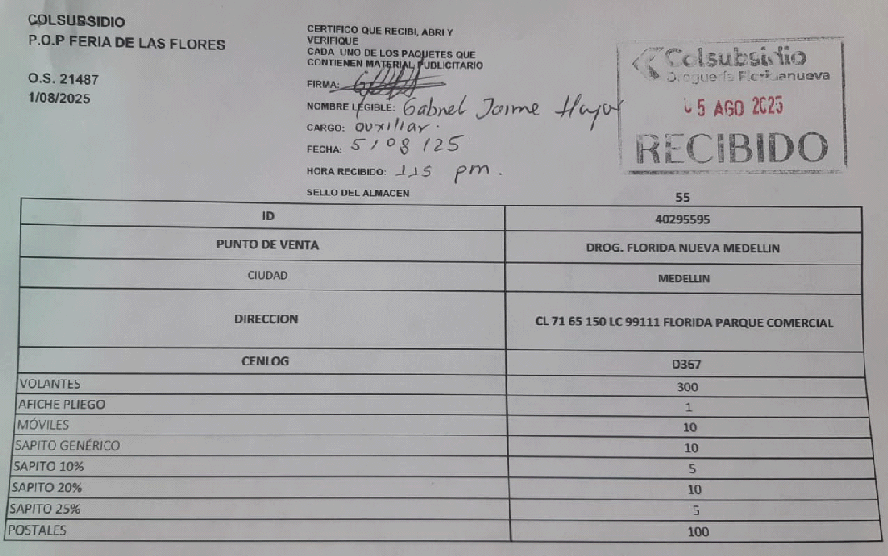 COLSUBSIDIO
P.O.P FERIA DE LAS FLORES
O.S. 21487
1/08/2025
CERTIFICO QUE RECIBI, ABRI Y
VERIFIQUE
CADA UNO DE LOS PAQUETES QUE
CONTIENEN MATERIAL PUBLICITARIO
FIRMA:
NOMBRE LEGIBLE: Gabriel Jaime
CARGO: auxiliar.
FECHA: 5/08/25
HORA RECIBIDO: 115 pm.
SELLO DEL ALMACEN
Colsubsidio
Droguería Floridanueva
05 AGO 2025
RECIBIDO
55
ID 40295595
PUNTO DE VENTA DROG. FLORIDA NUEVA MEDELLIN
CIUDAD MEDELLIN
DIRECCION CL 71 65 150 LC 99111 FLORIDA PARQUE COMERCIAL
CENLOG D367
VOLANTES 300
AFICHE PLIEGO 1
MÓVILES 10
SAPITO GENÉRICO 10
SAPITO 10% 5
SAPITO 20% 10
SAPITO 25% 5
POSTALES 100